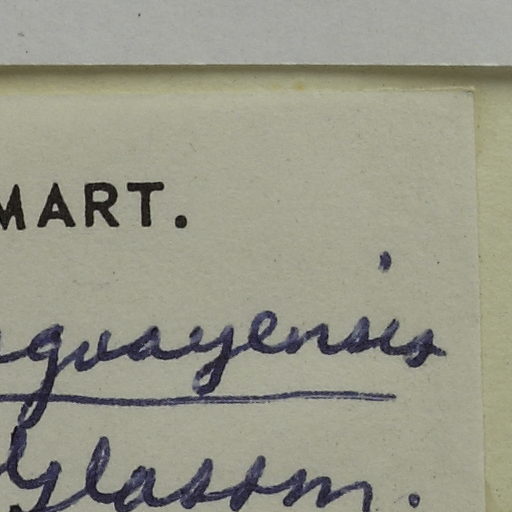 MART.
guayensis
Glassm.